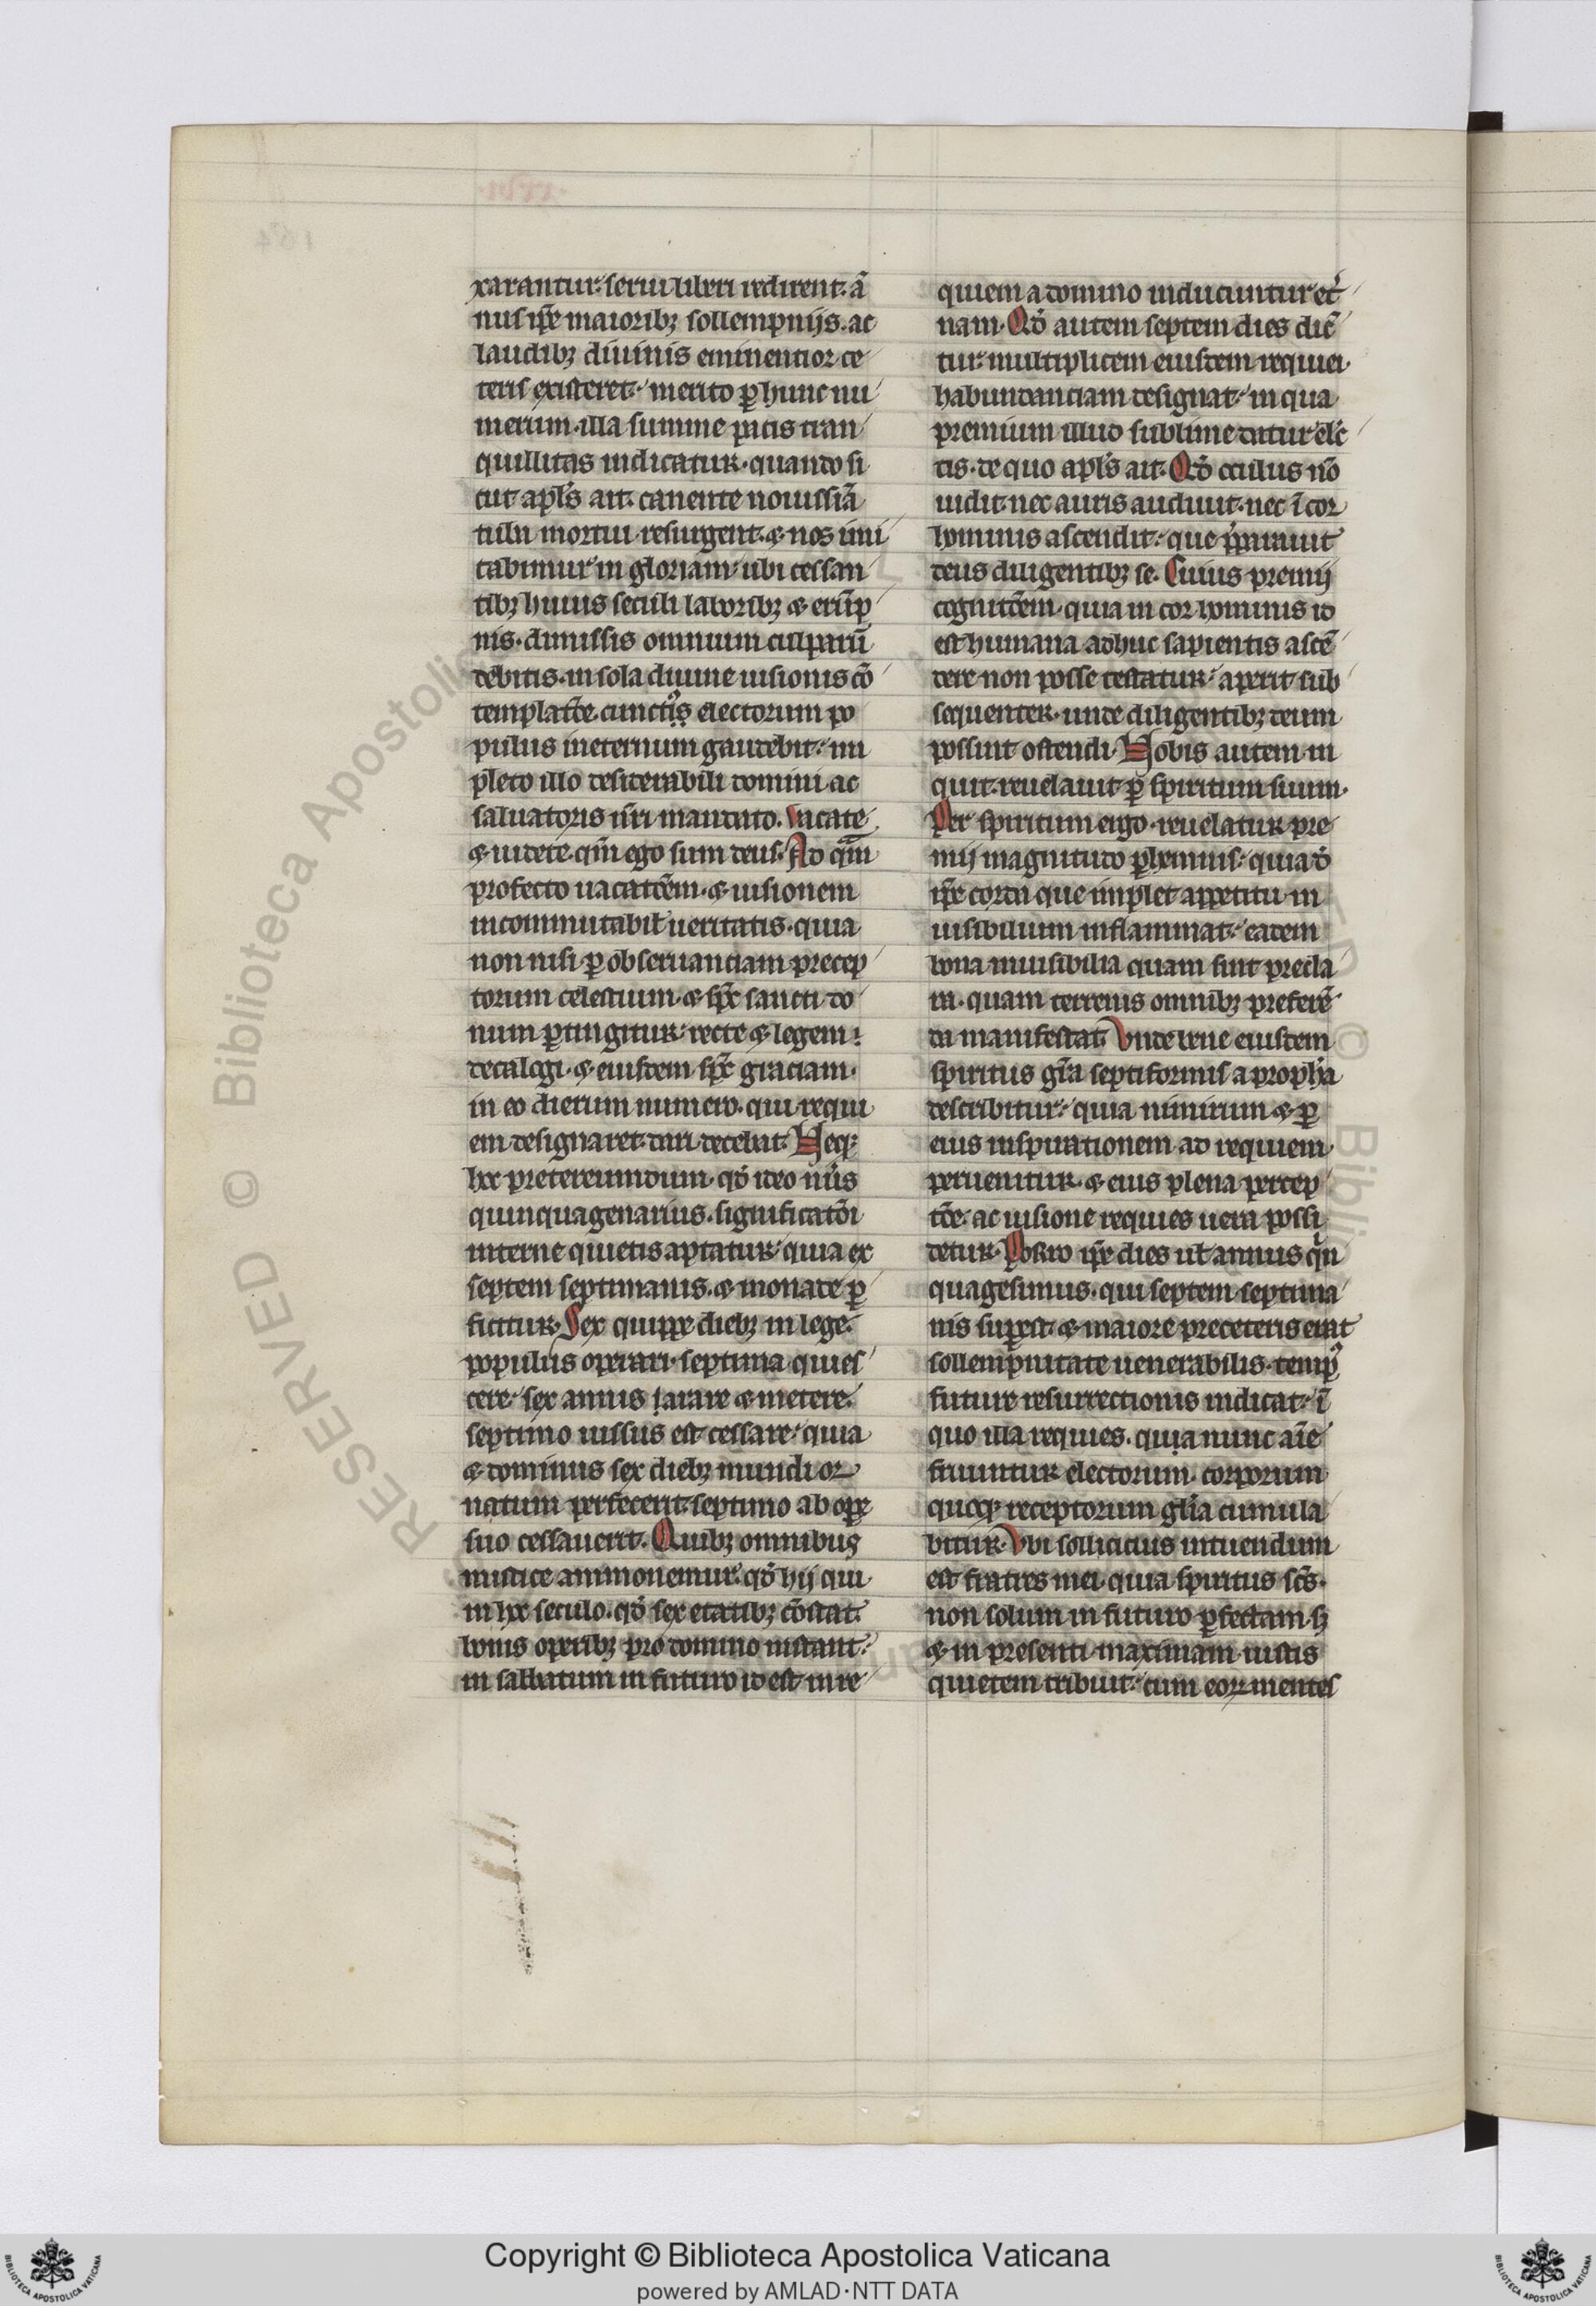 xarantur. serui liberi redirent. ā
nus ip̄e maioribꝫ sollempnijs. ac
laudibꝫ diuinis eminentior ce
teris existeret. merito ꝑ hunc nu
merum. illa summe pacis tran
quillitas indicatur. quando si
cut apl̄s ait. canente nouissīā
tuba mortui resurgent. ⁊ nos īmu
tabimur in gloriam. ubi cessan
tibꝫ huius seculi laboribꝫ ⁊ erūp
nis. dimissis omnium culparū
debitis. in sola diuine uisionis cō
templatōe. cunctꝰis electorum po
pulus ineternum gaudebit. im
pleto illo desiderabili domini ac
saluatoris n̄ri mandato. Vacate
⁊ uidete. qm̄ ego sum deus. Ad qm̄
profecto uacatōem. ⁊ uisionem
incommutabil̄ ueritatis. quia
non nisi ꝑ obseruanciam precep
torum celestium. ⁊ sp̄c sancti do
num ꝑtingitur. recte ⁊ legem
decalogi. ⁊ eiusdem sp̄c graciam.
in eo dierum numero. qui requi
em designaret. dari decebat. Neqꝫ
hoc pretereundum. qđ ideo nūs
quinquagenarius. significatōi
interne quietis aptatur. quia ex
septem septimanis. ⁊ monade ꝑ
ficitur. Sex quippe diebꝫ in lege
populus operari. septima quies
cere. sex annis arare ⁊ metere.
septimo iussus est cessare. quia
⁊ dominus sex diebꝫ mundi or
natum perfecerit. septimo ab oꝑe
suo cessauerit. Quibꝫ omnibus
mistice ammonemur. qđ hij qui
in hoc seculo. qđ sex etatibꝫ cōstat.
bonis operibꝫ pro domino instant.
in sabbatum in futuro id est in re
quiem a domino inducuntur et̾
nam. Qđ autem septem dies dic̄
tur. multiplicem eiusdem requiei.
habundanciam designat. in qua
premium illud sublime datur elc̄
tis. de quo apl̄s ait. Qđ oculus nō
uidit. nec auris audiuit. nec ī cor
hominis ascendit. que p̄parauit
deus diligentibꝫ se. Cuius premij
cognitōem. quia in cor hominis id
est humana adhuc sapientis ascē
dere non posse testatur. aperit sub
sequenter. unde diligentibꝫ deum
possint ostendi. Nobis autem in
quit. reuelauit ꝑ spiritum suum.
Per spiritum ergo. reuelatur pre
mij magnitudo ꝑhennis. quia đ
ip̄e corda que implet appetitu in
uisibilium inflammat. eadem
bona inuisibilia quam sint precla
ra. quam terrenis omnibꝫ preferē
da manifestat. Vnde bene eiusdem
spiritus gr̄a septiformis a proph̾a
describitur. quia nimirum ⁊ ꝑ
eius inspirationem ad requiem
peruenitur. ⁊ eius plena percep
tōe. ac uisione requies uera possi
detur. Porro ip̄e dies ul̄ annus qn̄
quagesimus. qui septem septima
nis suꝑest. ⁊ maiore preceteris erat
sollempnitate uenerabilis. tempꝰ
future resurrectionis indicat. ī
quo illa requies. quia nunc aīe
fruuntur electorum. corporum
quoqꝫ receptorum gl̄ia cumula
bitur. Vbi sollicicius intuendum
est fratres mei. quia spiritus sc̄s.
non solum in futuro ꝑfectam. sꝫ
⁊ in presenti maximam iustis
quietem tribuit. cum eoꝝ mentes
RESERVED © Biblioteca Apostolica
© Biblio
Copyright © Biblioteca Apostolica Vaticana
powered by AMLAD・NTT DATA
BIBLIOTECA APOSTOLICA VATICANA
BIBLIOTECA APOSTOLICA VATICANA